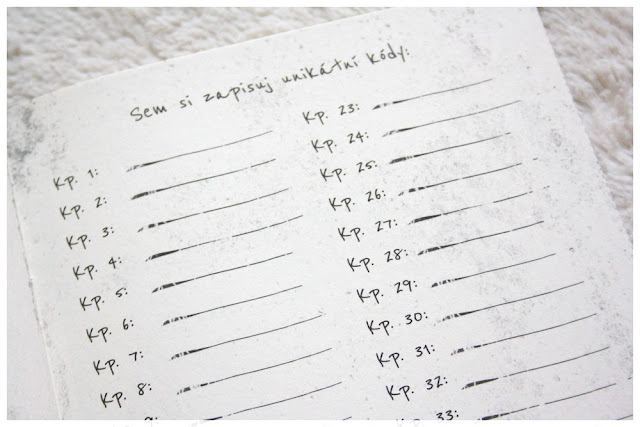 Sem si zapisuj unikátní kódy:
Kp. 1:
Kp. 2:
Kp. 3:
Kp. 4:
Kp. 5:
Kp. 6:
Kp. 7:
Kp. 8:
9:
Kp. 23:
Kp. 24:
Kp. 25:
Kp. 26:
Kp. 27:
Kp. 28:
Kp. 29:
Kp. 30:
Kp. 31:
Kp. 32:
Kp. 33: